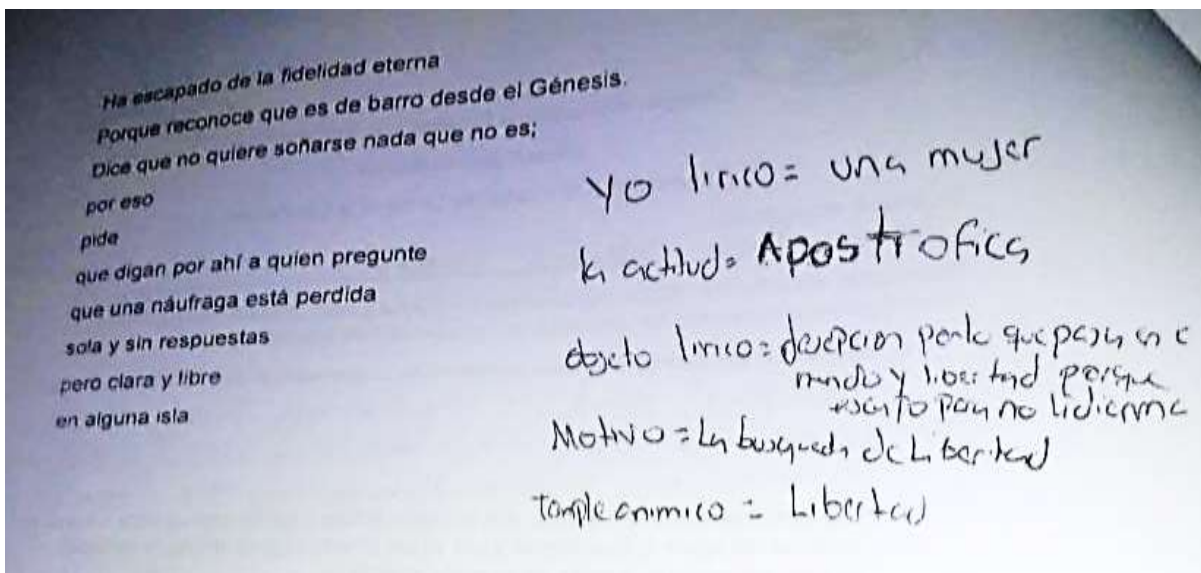 Ha escapado de la fidelidad eterna
Porque reconoce que es de barro desde el Génesis.
Dice que no quiere soñarse nada que no es;
por eso
pide
que digan por ahí a quien pregunte
que una náufraga está perdida
sola y sin respuestas
pero clara y libre
en alguna isla
Yo lirico = una mujer
la actitud = Apostrofica
objeto lirico = decepcion por lo que pasa en
mundo y libertad porque
no
Motivo = La busqueda de Libertad
Temple animico = Libertad